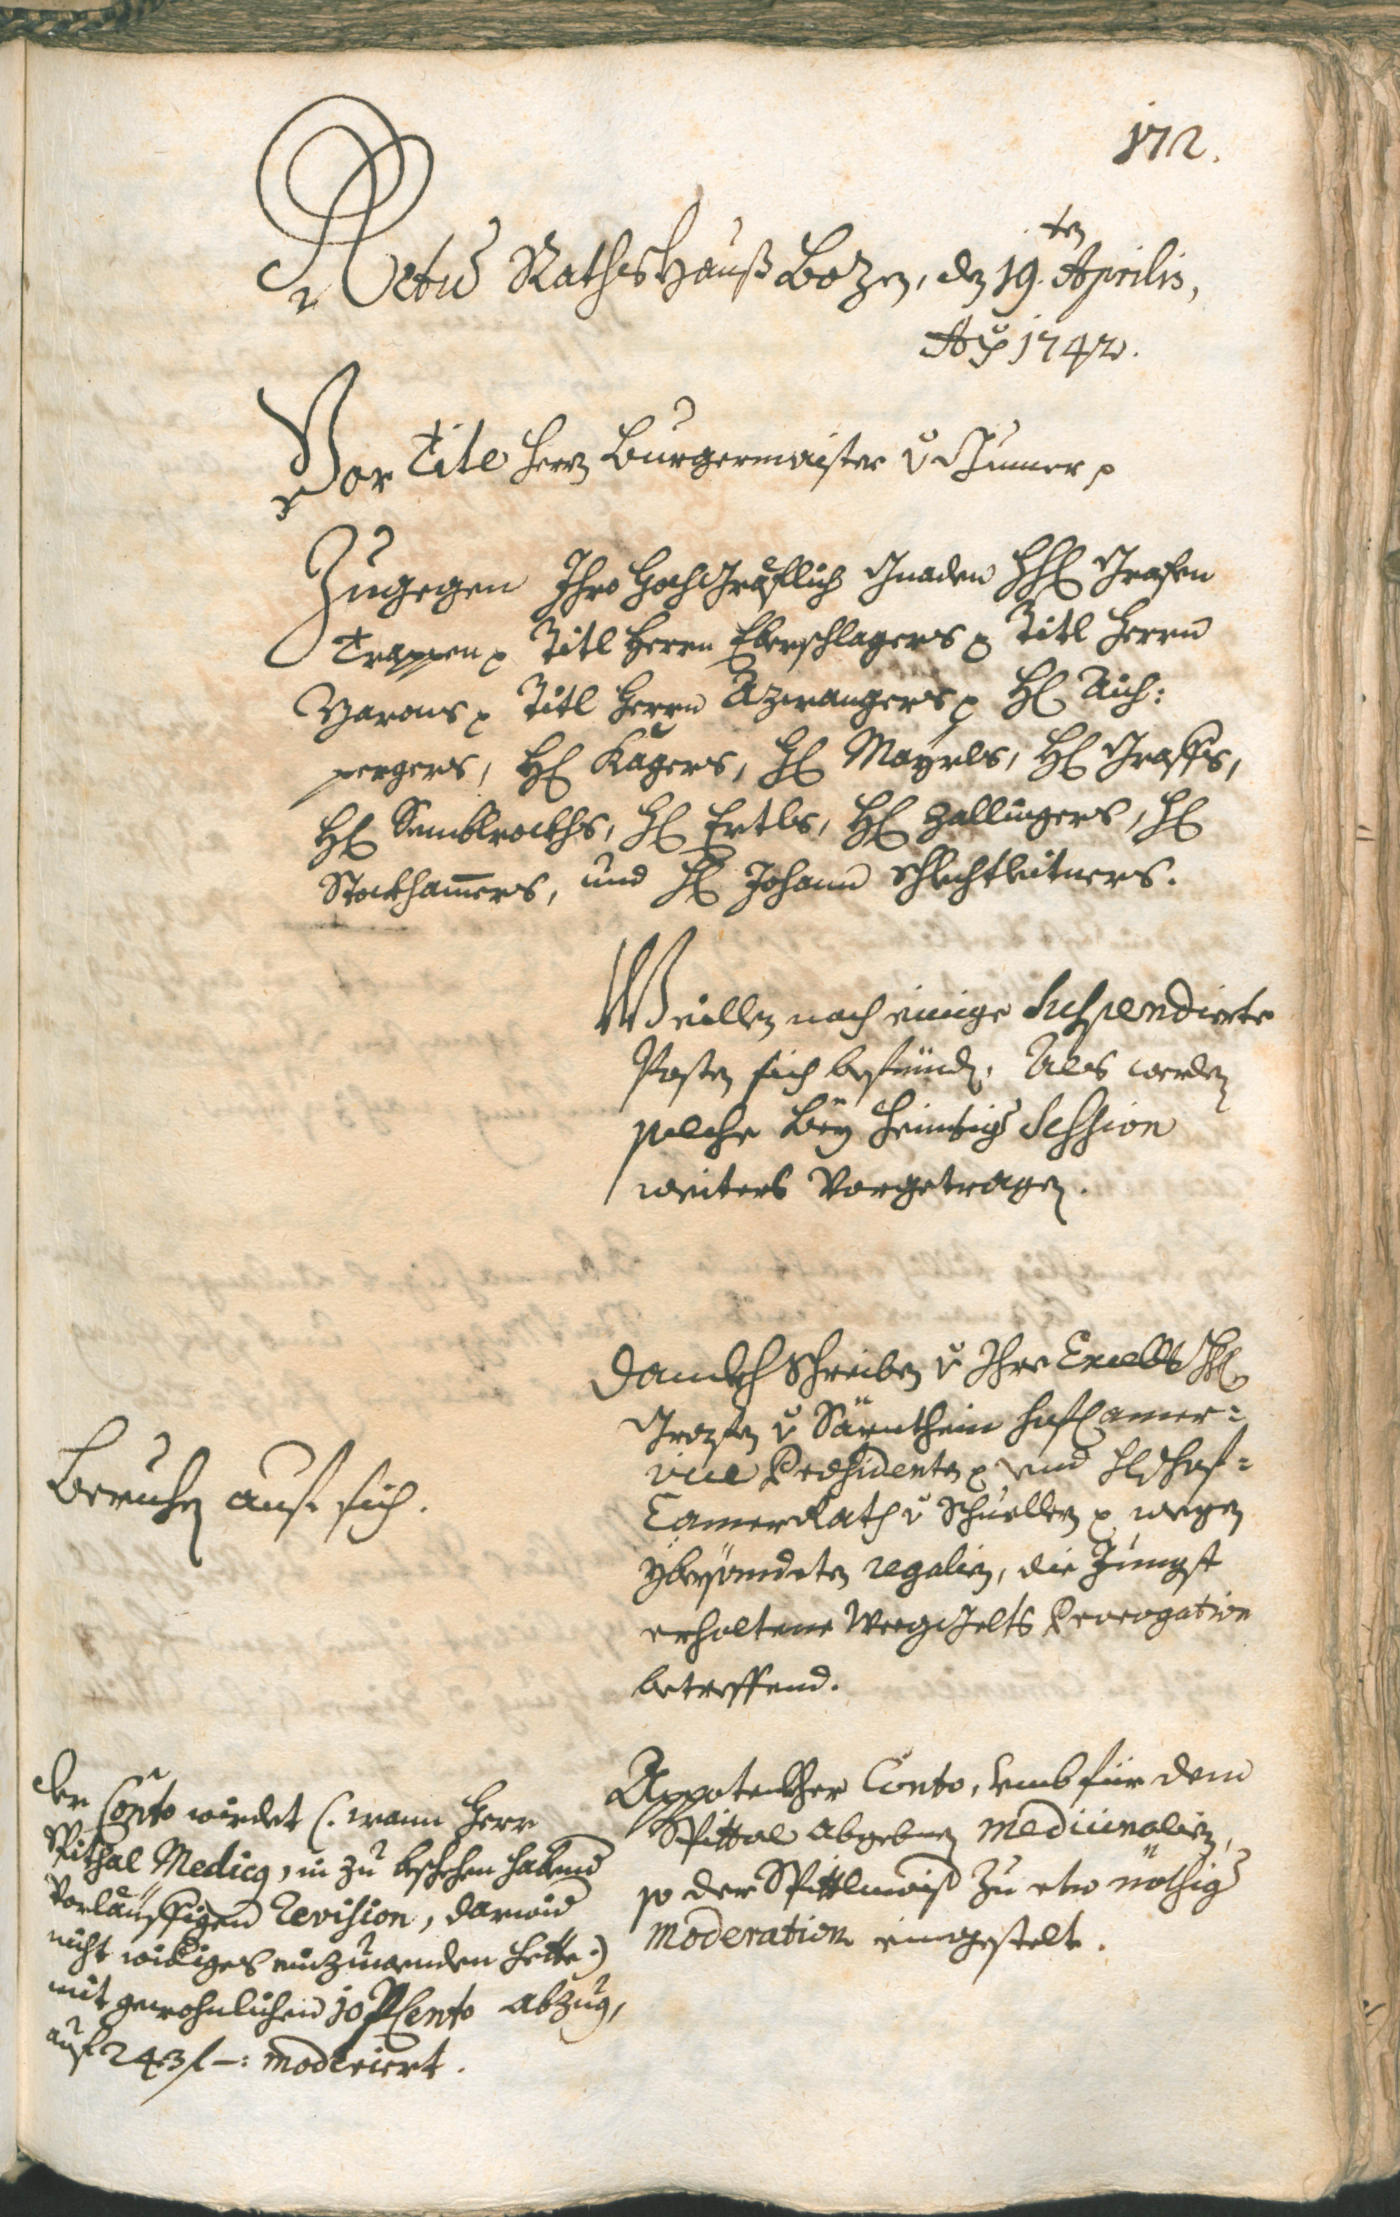 172.
Actum Rathshauß Bozen, den 19.ten Aprilis,
Ao 1742.
Vor Titl Herrn Burgermaister v: Gumer p
Zugegen Ihro Hochgräflich Gnaden HH Grafen
Trappen p Titl Herrn Eberschlagers p Titl Herrn
Marons p Titl Herrn Azwangers p H Aich:
pergers, H Kägers, H Mayrls, H Graffs,
H Semblrockhs, H Ertls, H Zallingers, H
Stockhamers, und H Johann Schlechtleitners.
Weillen noch einige Suspendierte
Posten sich befünd, Als werden
solche bey heintig Session
weiters vorgetragen.
Danckh Schreiben v: Ihro Excell H
Grafen v: Särnthein HofCamer=
vice Præsidenten p und H Hof=
CamerRath v: Schuellern p wegen
ybersendeten regalien, die Jüngst
erhaltene Weeg Gelts Prorogation
betreffend.
Beruhen auf sich.
Appoteckher Conto, umb für dem
Spittal abgebnen medicinalien,
so der Spittlmaist zu etw nöthig
moderation eingestelt.
Der Conto wirdet (: wann Herr
Spithal Medicus, in zu beschehen habend
vorläuffigen Revision, darwid
nicht widriges einzuwenden hette:)
mit gewohnlichen 10 P Cento abzug,
auf 243 f –: moderiert.